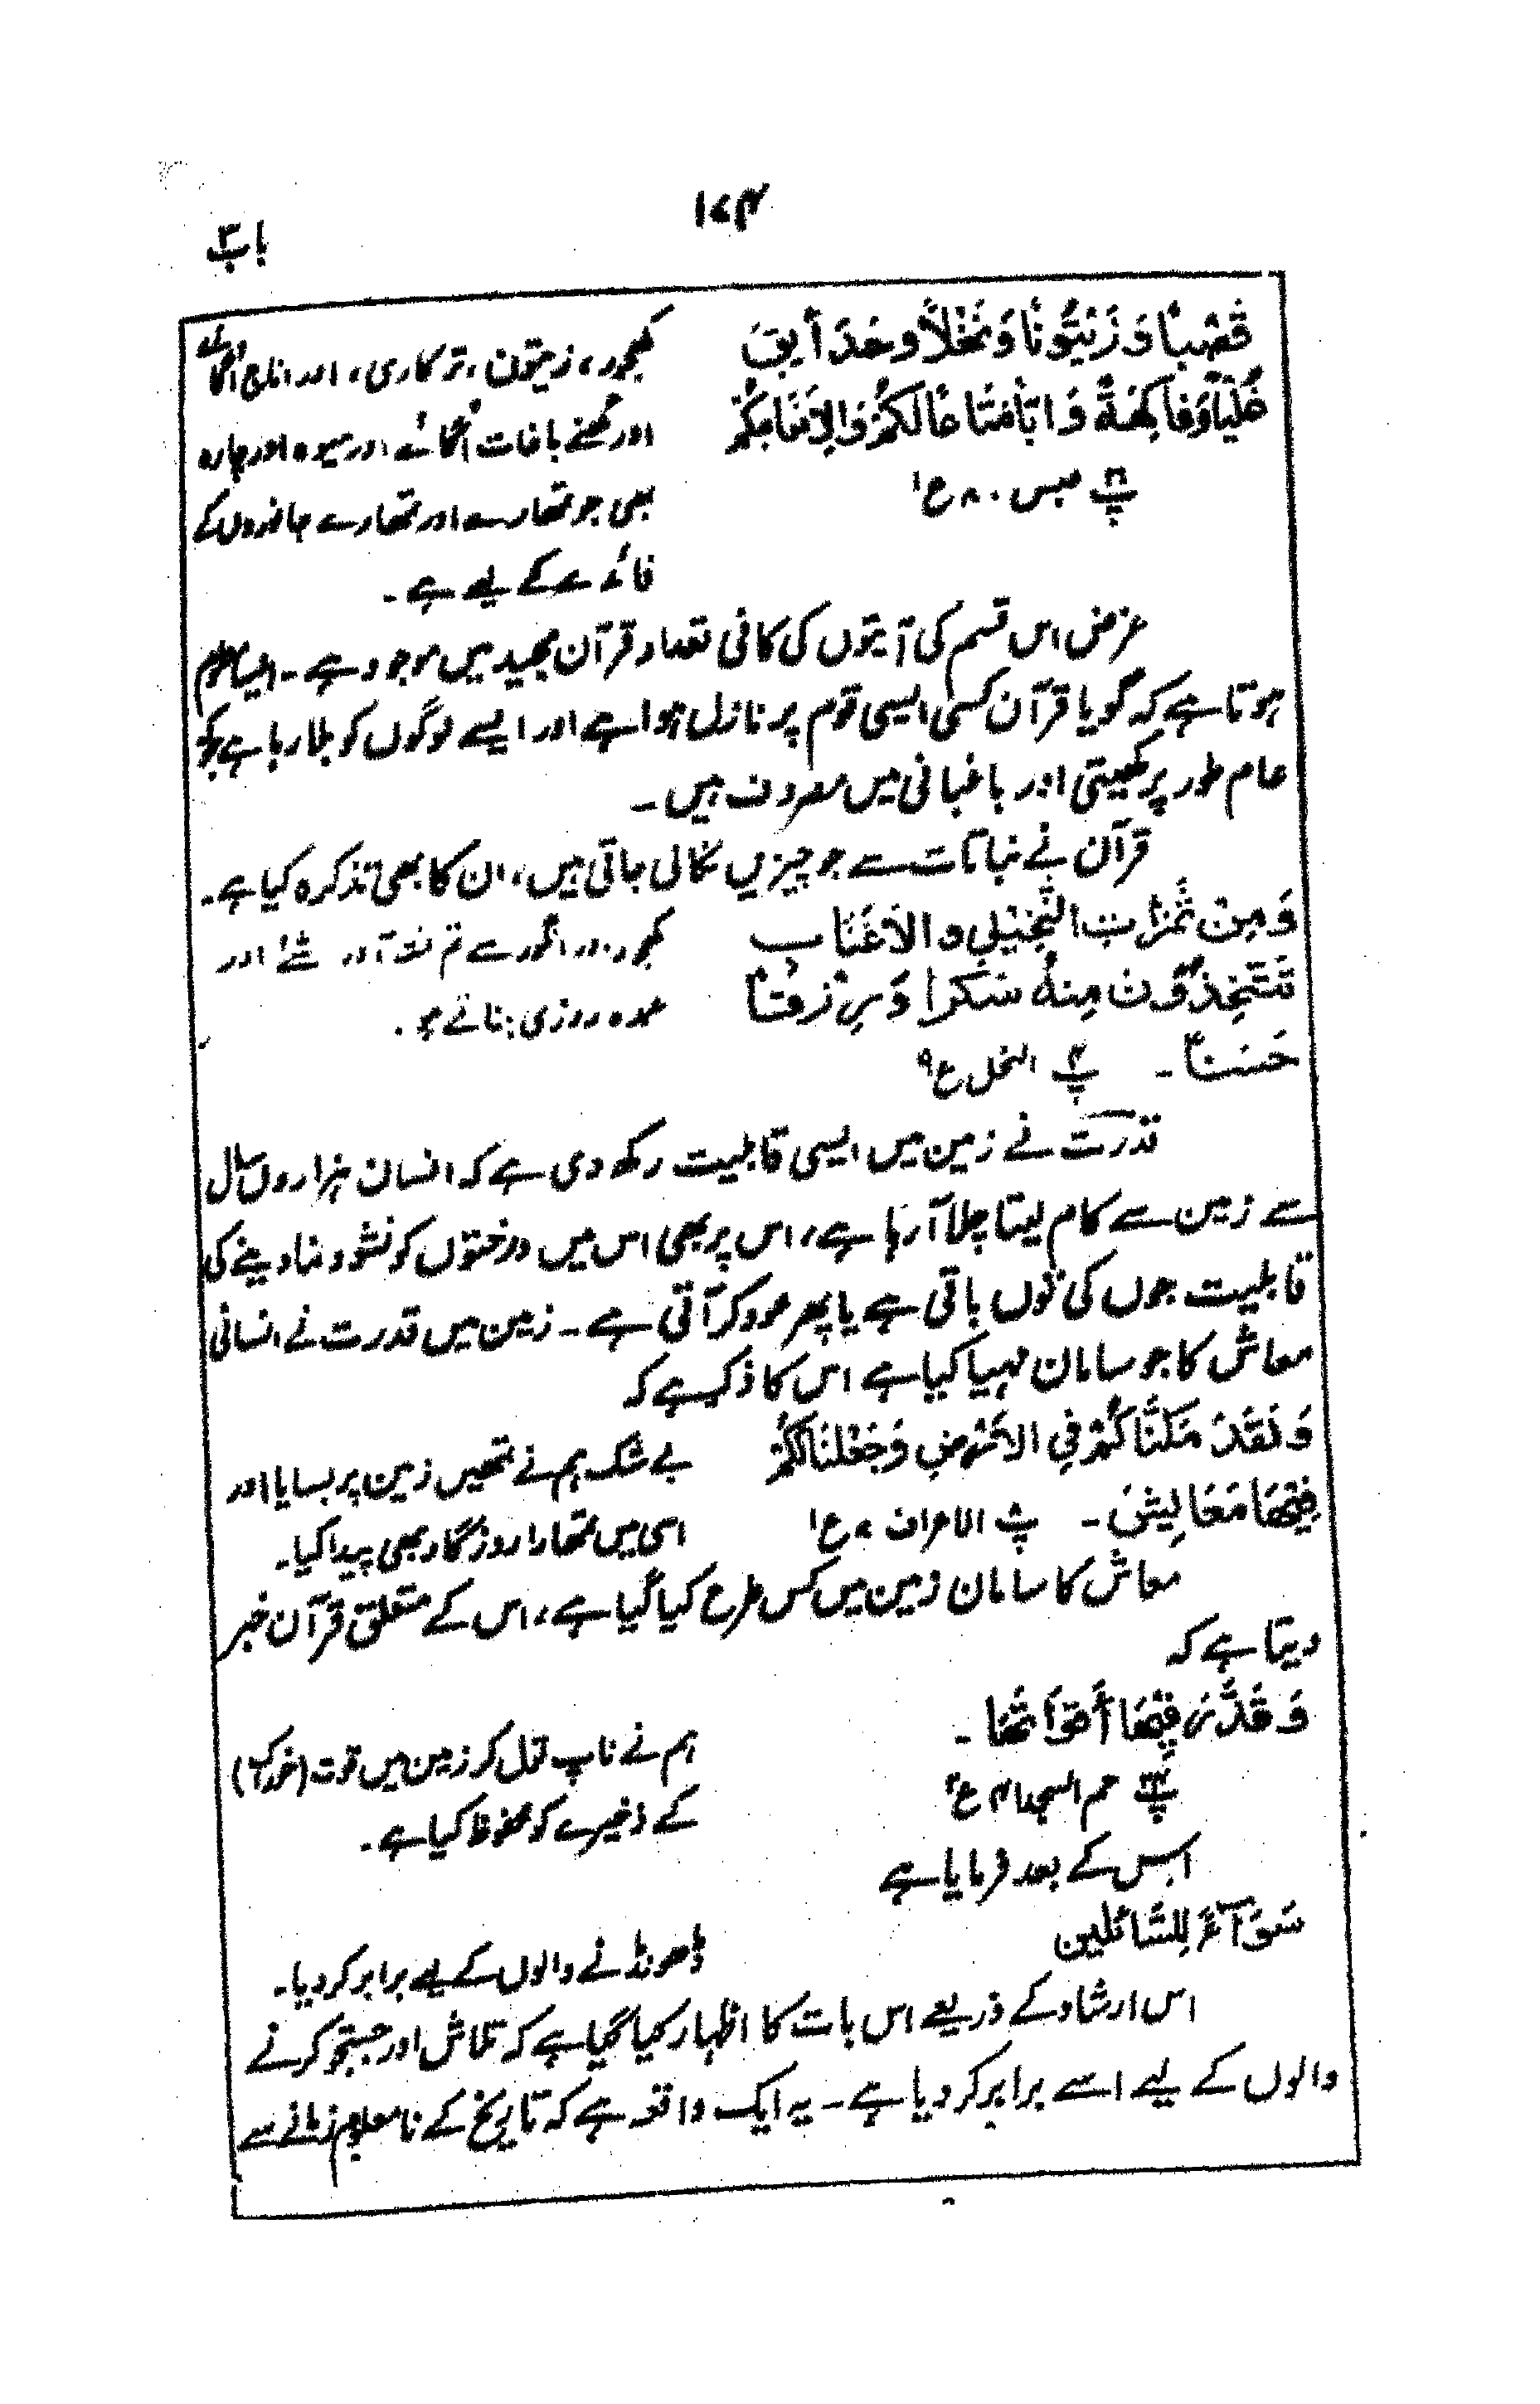 ۱۷۴
باب ۳
قَضْبًا وَ زَیْتُونًا وَ نَخْلًا وحَدَ أیِقَ
غُلْبًا وَ فَاکِهَةً وَ ابًّا مَتَا عًا لَکُمْ وَ لِاَنْعَامِکُمْ
پ۳۰ عبس ۸۰ ع۱
کھجور، زیتون، ترکاری، اور اناج اگائے
اور گھنے باغات اُگائے اور میوہ اور چارہ
بھی جو تمھارے اور تمھارے جانوروں کے
فائدے کے لیے ہے۔
غرض اس قسم کی آیتوں کی کافی تعداد قرآن مجید میں موجود ہے۔ ایسا معلوم
ہوتا ہے کہ گویا قرآن کسی ایسی قوم پر نازل ہوا ہے اور ایسے لوگوں کو بلا رہا ہے جو
عام طور پر کھیتی اور باغبانی میں مصروف ہیں۔
قرآن نے نباتات سے جو چیزیں نکالی جاتی ہیں، ان کا بھی تذکرہ کیا ہے۔
وَ مِنْ ثَمَرٰتِ النَّخِیْلِ و الاَعْنَابِ
تَتَّخِذُوْنَ مِنْهُ سَکَرًا وَّ رِزْقًا
حَسَنًا۔ پ۱۴ النحل ع۹
کھجور اور انگور سے تم نشہ آور شئے اور
عمدہ روزی بناتے ہو۔
قدرت نے زمین میں ایسی قابلیت رکھ دی ہے کہ انسان ہزاروں سال
سے زمین سے کام لیتا چلا آرہا ہے، اس پر بھی اس میں درختوں کو نشو و نما دینے کی
قابلیت جوں کی توں باقی ہے یا پھر عود کر آتی ہے۔ زمین میں قدرت نے انسانی
معاش کا جو سامان مہیا کیا ہے اس کا ذکر ہے کہ
وَ لَقَدْ مَکَّنَّا کُمْ فِی الاَرْضِ وَ جَعَلْنَا لَکُمْ
فِیْهَا مَعَایِشَ۔ پ۸ الاعراف ۷ ع۱
بے شک ہم نے تمھیں زمین پر بسایا اور
اسی میں تمھارا روزگار بھی پیدا کیا۔
معاش کا سامان زمین میں کس طرح کیا گیا ہے، اس کے متعلق قرآن خبر
دیتا ہے کہ
وَ قَدَّرَ فِیْهَا أَقْوَاتَهَا۔
پ۲۴ حم السجدا ۴ ع۲
ہم نے ناپ تول کر زمین میں قوت (خوراک)
کے ذخیرے کو محفوظ کیا ہے۔
اس کے بعد فرمایا ہے
سَوَآءً لِلسَّائلین
ڈھونڈنے والوں کے لیے برابر کردیا۔
اس ارشاد کے ذریعے اس بات کا اظہار کیا گیا ہے کہ تلاش اور جستجو کرنے
والوں کے لیے اسے برابر کر دیا ہے۔ یہ ایک واقعہ ہے کہ تاریخ کے نامعلوم زمانے سے